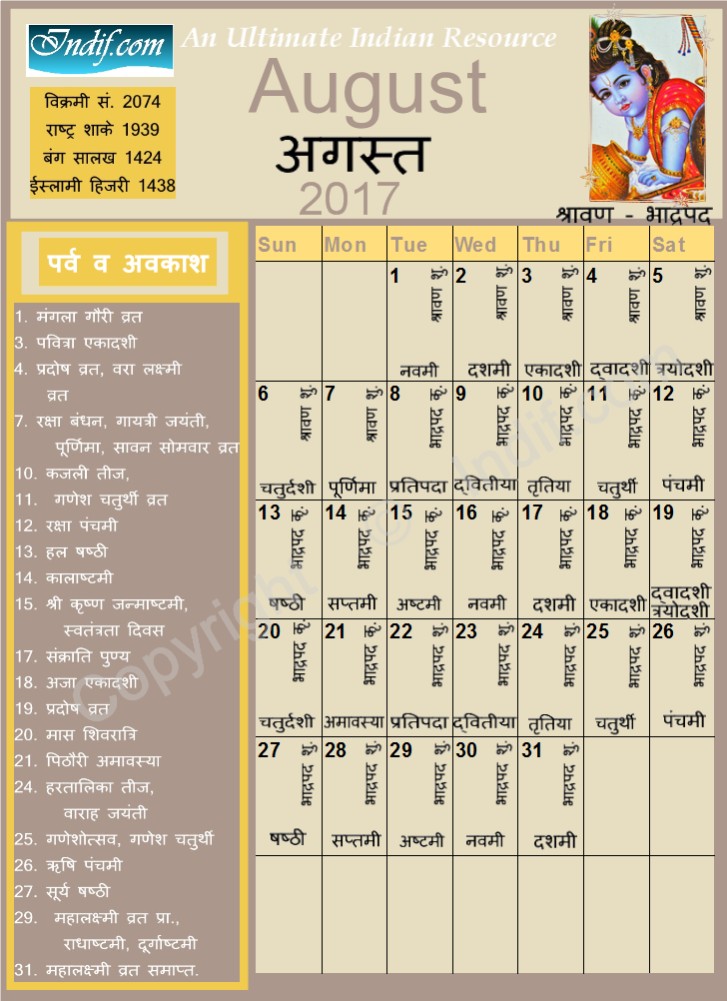 Indif.com
An Ultimate Indian Resource
August
अगस्त
2017
विक्रमी सं. 2074
राष्ट्र शाके 1939
बंग सालख 1424
ईस्लामी हिजरी 1438
श्रावण - भाद्रपद
पर्व व अवकाश
1. मंगला गौरी व्रत
3. पवित्रा एकादशी
4. प्रदोष व्रत, वरा लक्ष्मी
व्रत
7. रक्षा बंधन, गायत्री जयंती,
पूर्णिमा, सावन सोमवार व्रत
10. कजली तीज,
11. गणेश चतुर्थी व्रत
12. रक्षा पंचमी
13. हल षष्ठी
14. कालाष्टमी
15. श्री कृष्ण जन्माष्टमी,
स्वतंत्रता दिवस
17. संक्राति पुण्य
18. अजा एकादशी
19. प्रदोष व्रत
20. मास शिवरात्रि
21. पिठौरी अमावस्या
24. हरतालिका तीज,
वाराह जयंती
25. गणेशोत्सव, गणेश चतुर्थी
26. ऋषि पंचमी
27. सूर्य षष्ठी
29. महालक्ष्मी व्रत प्रा.,
राधाष्टमी, दूर्गाष्टमी
31. महालक्ष्मी व्रत समाप्त.
Sun Mon Tue Wed Thu Fri Sat
1 श्रावण शु. 2 श्रावण शु. 3 श्रावण शु. 4 श्रावण शु. 5 श्रावण शु.
नवमी दशमी एकादशी द्वादशी त्रयोदशी
6 श्रावण शु. 7 श्रावण शु. 8 भाद्रपद कृ. 9 भाद्रपद कृ. 10 भाद्रपद कृ. 11 भाद्रपद कृ. 12 भाद्रपद कृ.
चतुर्दशी पूर्णिमा प्रतिपदा द्वितीया तृतिया चतुर्थी पंचमी
13 भाद्रपद कृ. 14 भाद्रपद कृ. 15 भाद्रपद कृ. 16 भाद्रपद कृ. 17 भाद्रपद कृ. 18 भाद्रपद कृ. 19 भाद्रपद कृ.
षष्ठी सप्तमी अष्टमी नवमी दशमी एकादशी द्वादशी
त्रयोदशी
20 भाद्रपद कृ. 21 भाद्रपद कृ. 22 भाद्रपद शु. 23 भाद्रपद शु. 24 भाद्रपद शु. 25 भाद्रपद शु. 26 भाद्रपद शु.
चतुर्दशी अमावस्या प्रतिपदा द्वितीया तृतिया चतुर्थी पंचमी
27 भाद्रपद शु. 28 भाद्रपद शु. 29 भाद्रपद शु. 30 भाद्रपद शु. 31 भाद्रपद शु.
षष्ठी सप्तमी अष्टमी नवमी दशमी
Copyright © Indif.com